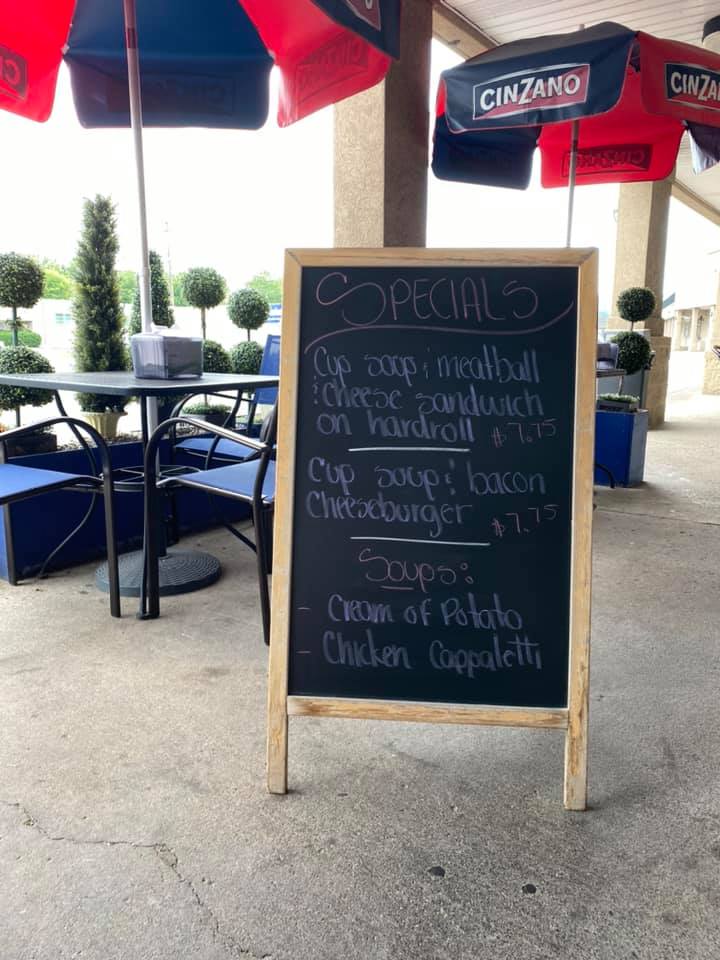 CINZANO
CINZA
SPECIALS
Cup soup & meatball
& Cheese sandwich
on hardroll $7.75
Cup soup & bacon
Cheeseburger $7.75
Soups:
- Cream of Potato
- Chicken Cappaletti